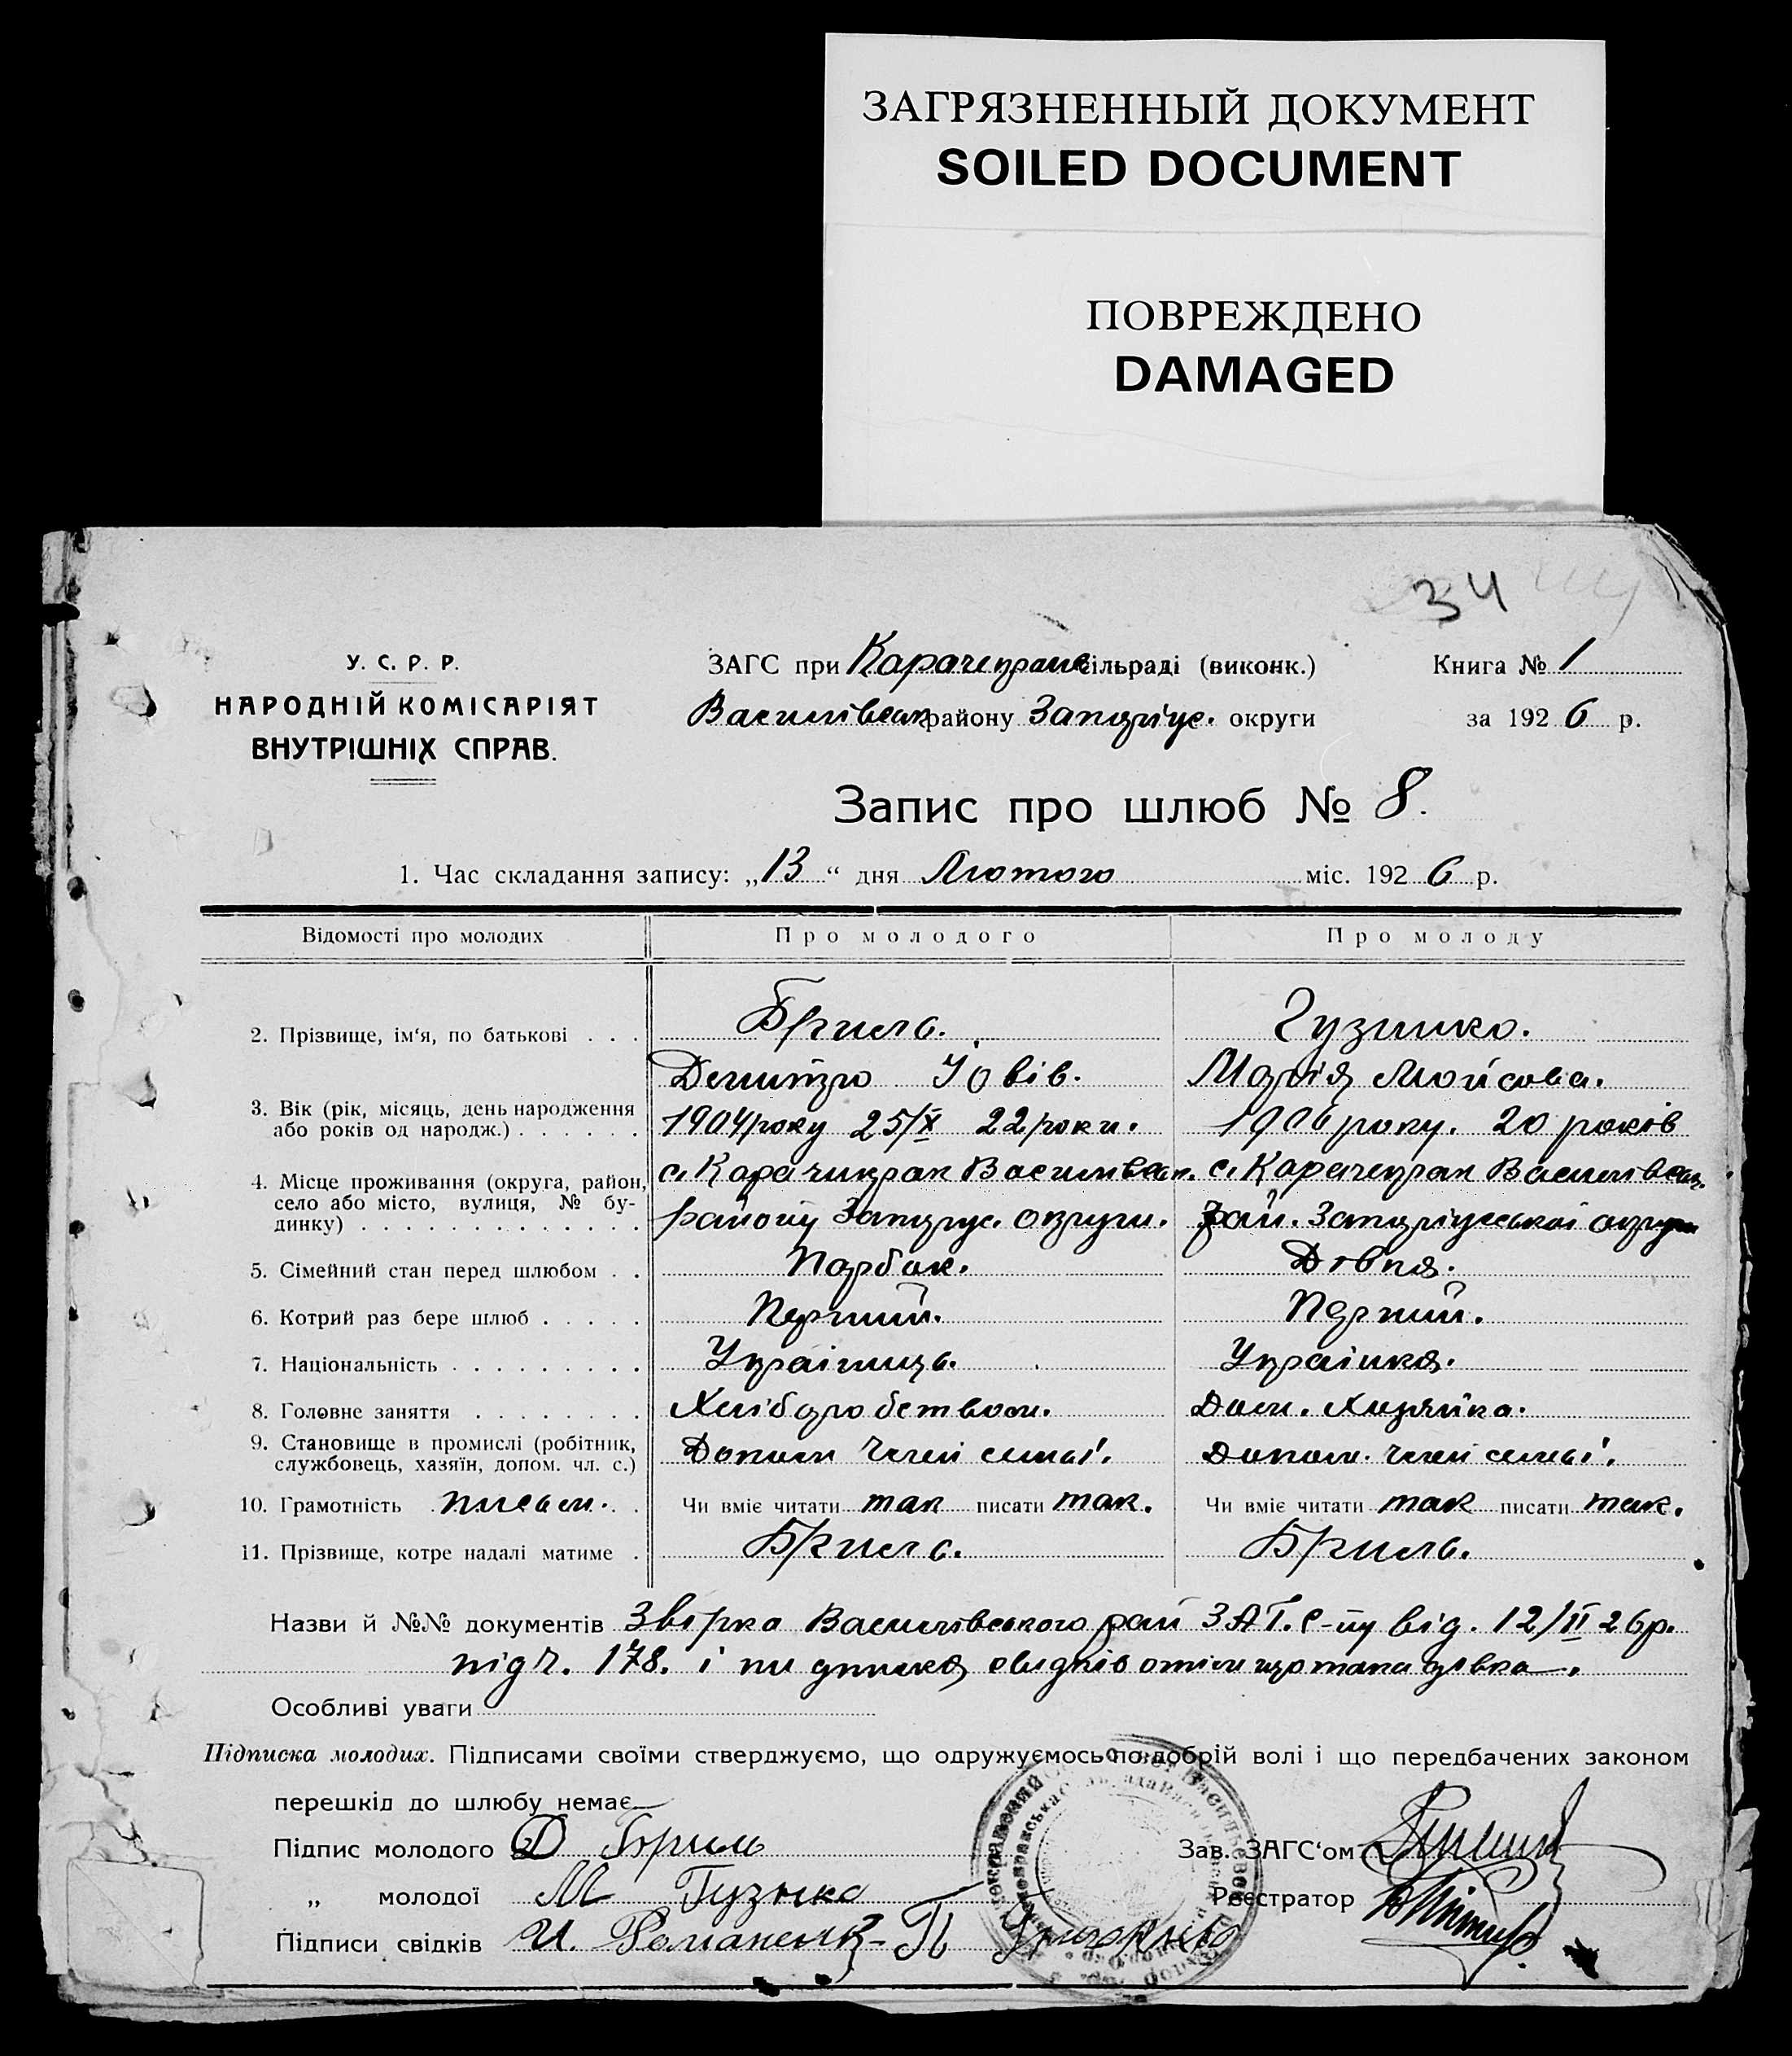 ЗАГРЯЗНЕННЫЙ ДОКУМЕНТ
SOILED DOCUMENT
ПОВРЕЖДЕНО
DAMAGED
34
У. С. Р. Р.
НАРОДНІЙ КОМІСАРІЯТ
ВНУТРІШНІХ СПРАВ.
ЗАГС при Карачекрак сільраді (виконк.) Книга № 1
Василівськ району Запоріус. округи за 1926 р.
Запис про шлюб № 8.
1. Час складання запису: „13“ дня Лютого міс. 1926 р.
Відомості про молодих Про молодого Про молоду
2. Прізвище, ім‘я, по батькові . . . Бриль. Гузинко.
Демитро Іовів. Марія Мойсова.
3. Вік (рік, місяць, день народження або років од народж.) . . . . . . 1904 року 25/X 22 роки. 1906 року. 20 років
4. Місце проживання (округа, район, село або місто, вулиця, № будинку) . . . . . . . . . . . . . с. Карачикрак Василівськ. с. Карачекрак Василівськ.
району Запоріус. округи. рай. Запоріуської округи
5. Сімейний стан перед шлюбом . . Парбок. Дівка.
6. Котрий раз бере шлюб . . . . . Перший. Перший.
7. Національність . . . . . . . . . Українець. Українка.
8. Головне заняття . . . . . . . . Хліборобством. Дом. Хозяйка.
9. Становище в промислі (робітник, службовець, хазяїн, допом. чл. с.) Допом член семьї. Допом. член семьї.
10. Грамотність письм. Чи вміє читати так писати так. Чи вміє читати так писати так.
11. Прізвище, котре надалі матиме . Бриль. Бриль.
Назви й №№ документів Звірка Василівського рай ЗАГ.С-ну від. 12/II 26р.
під ч. 178. і
Особливі уваги
Підписка молодих. Підписами своїми стверджуємо, що одружуємось по добрій волі і що передбачених законом
перешкід до шлюбу немає.
Підпис молодого Д Бриль Зав. ЗАГС‘ом
„ молодої М Гузынко Реєстратор
Підписи свідків И. Романенко - П